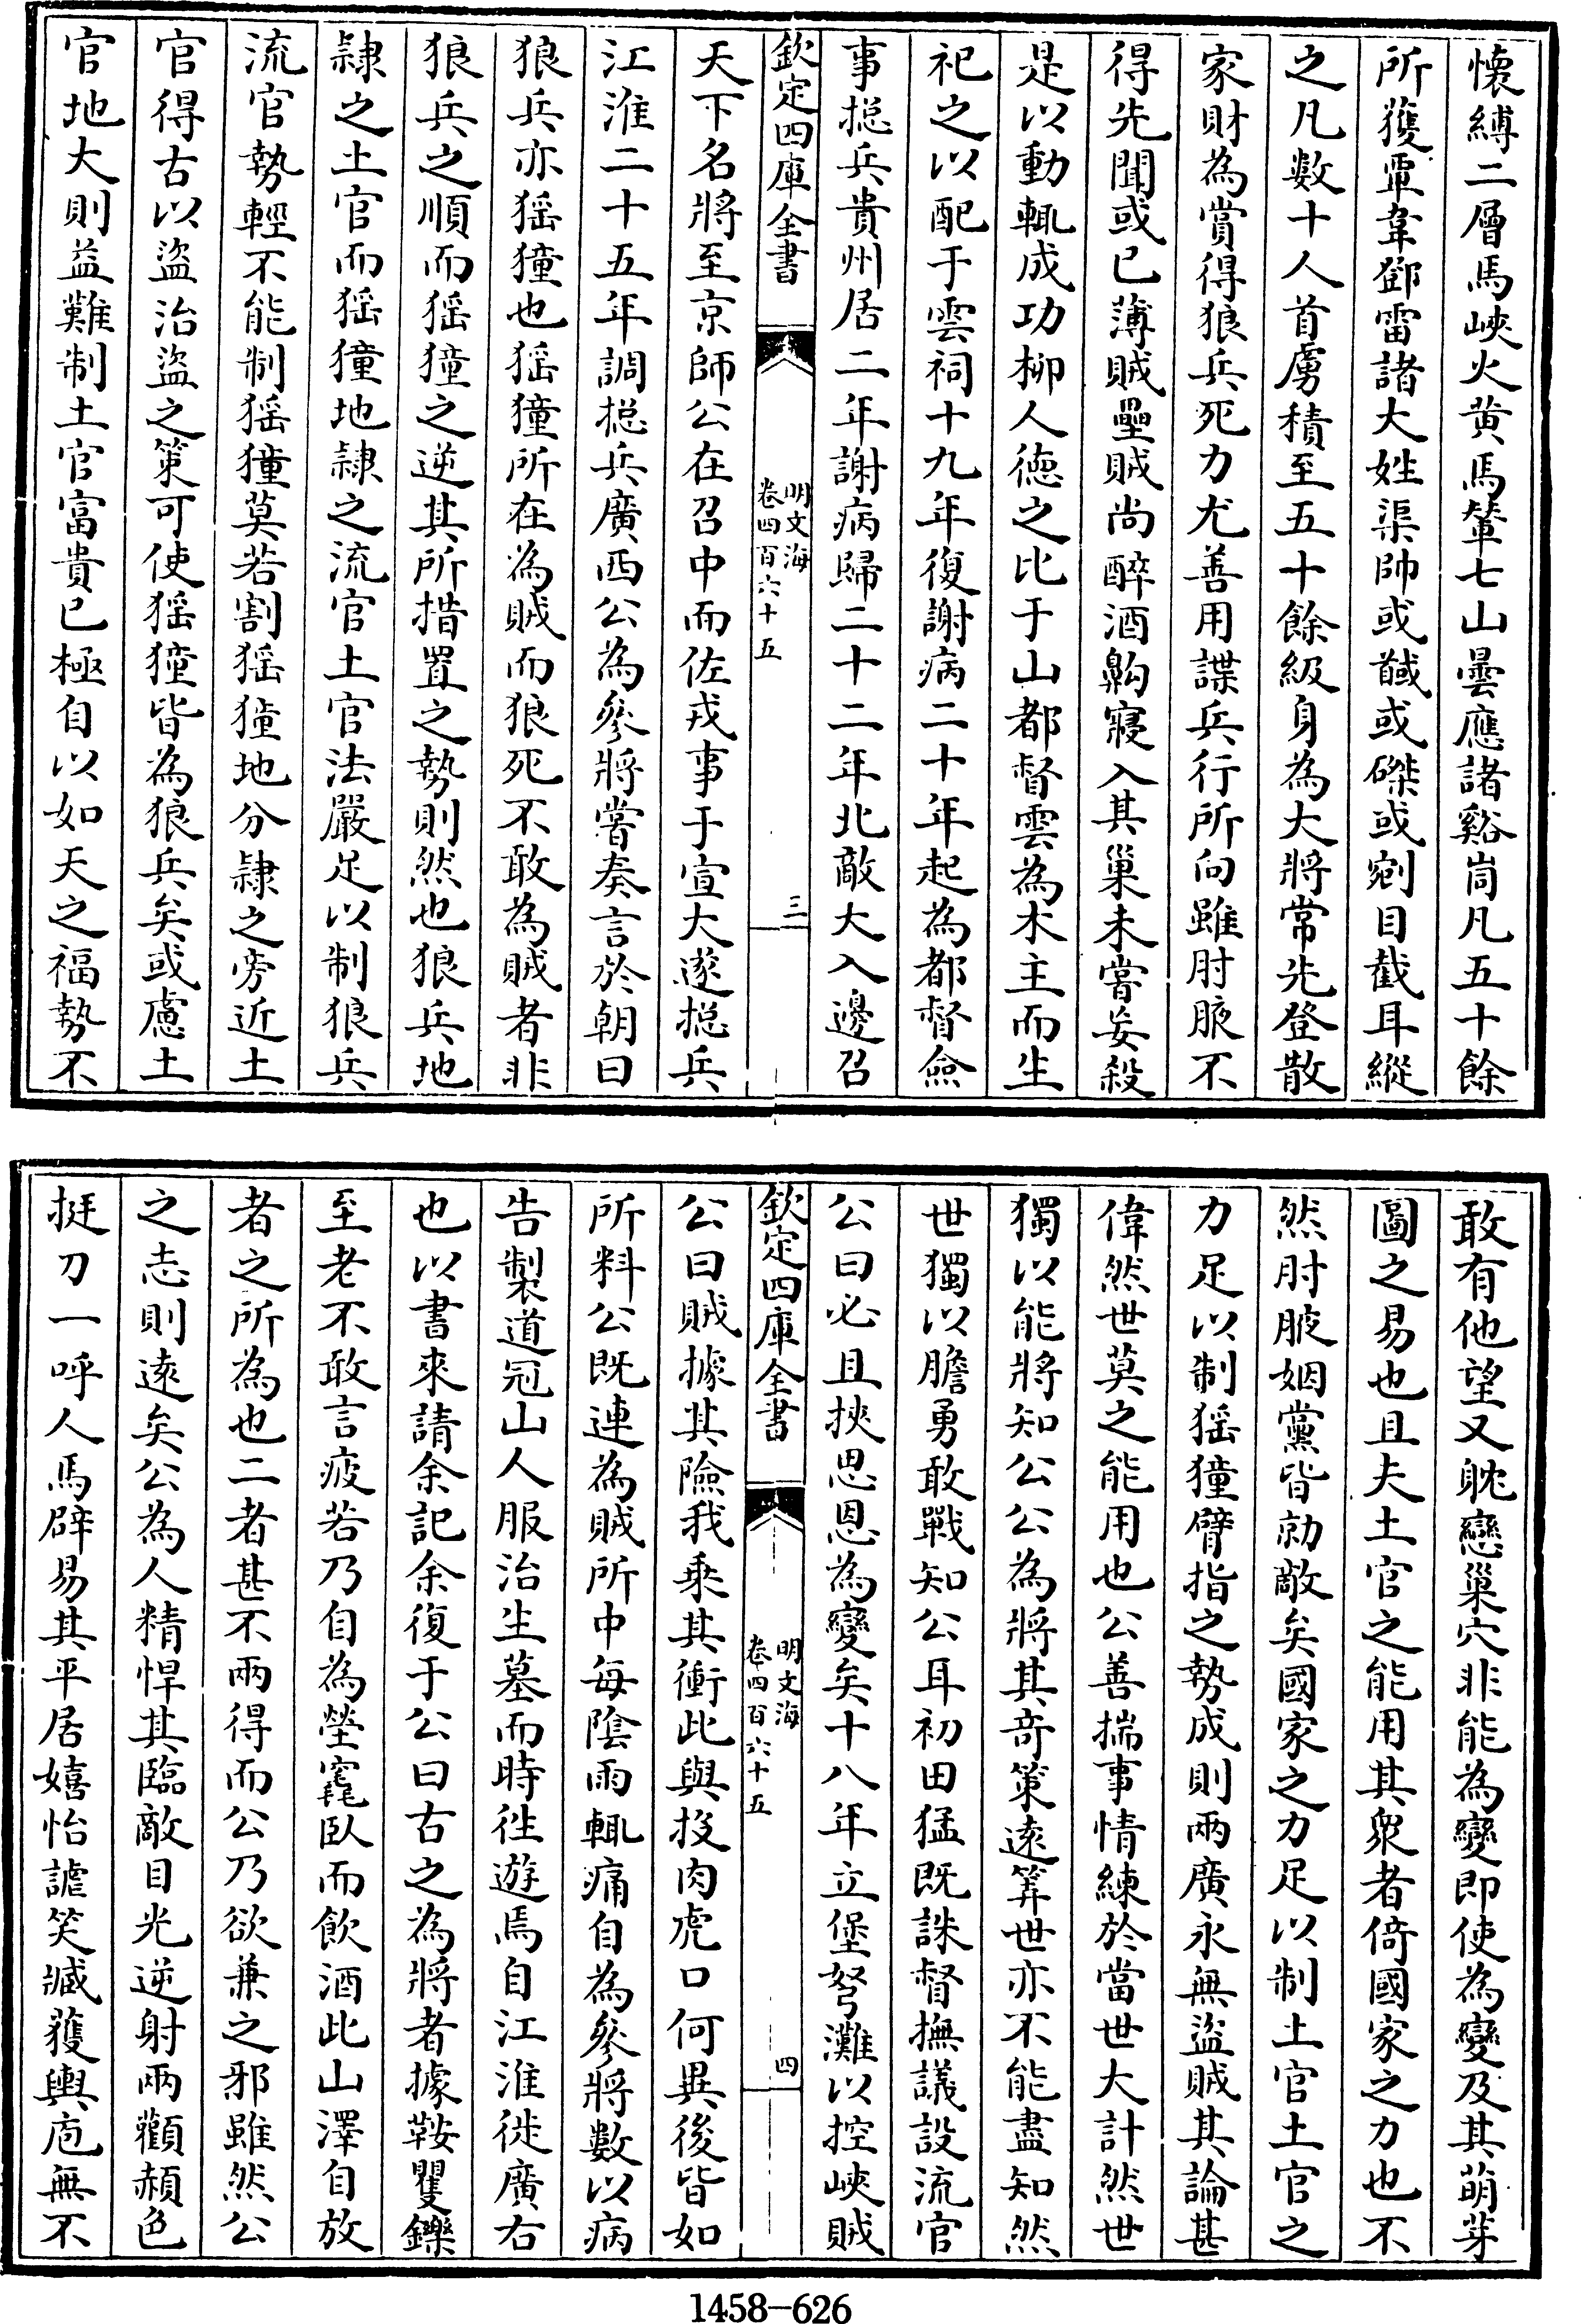 懐縛二層馬峽火黄馬輦七山曇應諸谿峝凡五十餘
所獲覃韋鄧雷諸大姓渠帥或馘或磔或剜目截耳縱
之凡數十人首虜積至五十餘級身為大將常先登散
家財為賞得狼兵死力尤善用諜兵行所向雖肘腋不
得先聞或已薄賊壘賊尚醉酒鼾寢入其巢未嘗妄殺
是以動輒成功柳人徳之比于山都督雲為木主而生
祀之以配于雲祠十九年復謝病二十年起為都督僉
事捴兵貴州居二年謝病歸二十二年北敵大入邊召
欽定四庫全書
明文海
卷四百六十五
三
天下名將至京師公在召中而佐戎事于宣大遂捴兵
江淮二十五年調捴兵廣西公為參將嘗奏言於朝曰
狼兵亦猺獞也猺獞所在為賊而狼死不敢為賊者非
狼兵之順而猺獞之逆其所措置之勢則然也狼兵地
隸之土官而猺獞地隸之流官土官法嚴足以制狼兵
流官勢輕不能制猺獞莫若割猺獞地分隸之旁近土
官得古以盜治盜之策可使猺獞皆為狼兵矣或慮土
官地大則益難制土官富貴已極自以如天之福勢不
敢有他望又躭戀巢穴非能為變即使為變及其萌芽
圖之易也且夫土官之能用其衆者倚國家之力也不
然肘腋姻黨皆勍敵矣國家之力足以制土官土官之
力足以制猺獞臂指之勢成則兩廣永無盜賊其論甚
偉然世莫之能用也公善揣事情練於當世大計然世
獨以能將知公公為將其奇策遠筭世亦不能盡知然
世獨以膽勇敢戰知公耳初田猛既誅督撫議設流官
公曰必且挾思恩為變矣十八年立堡弩灘以控峽賊
欽定四庫全書
明文海
卷四百六十五
四
公曰賊據其險我乘其衝此與投肉虎口何異後皆如
所料公既連為賊所中毎陰雨輒痛自為參將數以病
告製道冠山人服治生墓而時徃遊焉自江淮徙廣右
也以書來請余記余復于公曰古之為將者據鞍矍鑠
至老不敢言疲若乃自為塋窀臥而飲酒此山澤自放
者之所為也二者甚不兩得而公乃欲兼之邪雖然公
之志則遠矣公為人精悍其臨敵目光逆射兩顴頳色
挺刀一呼人馬辟易其平居嬉怡謔笑臧獲輿庖無不
1458-626